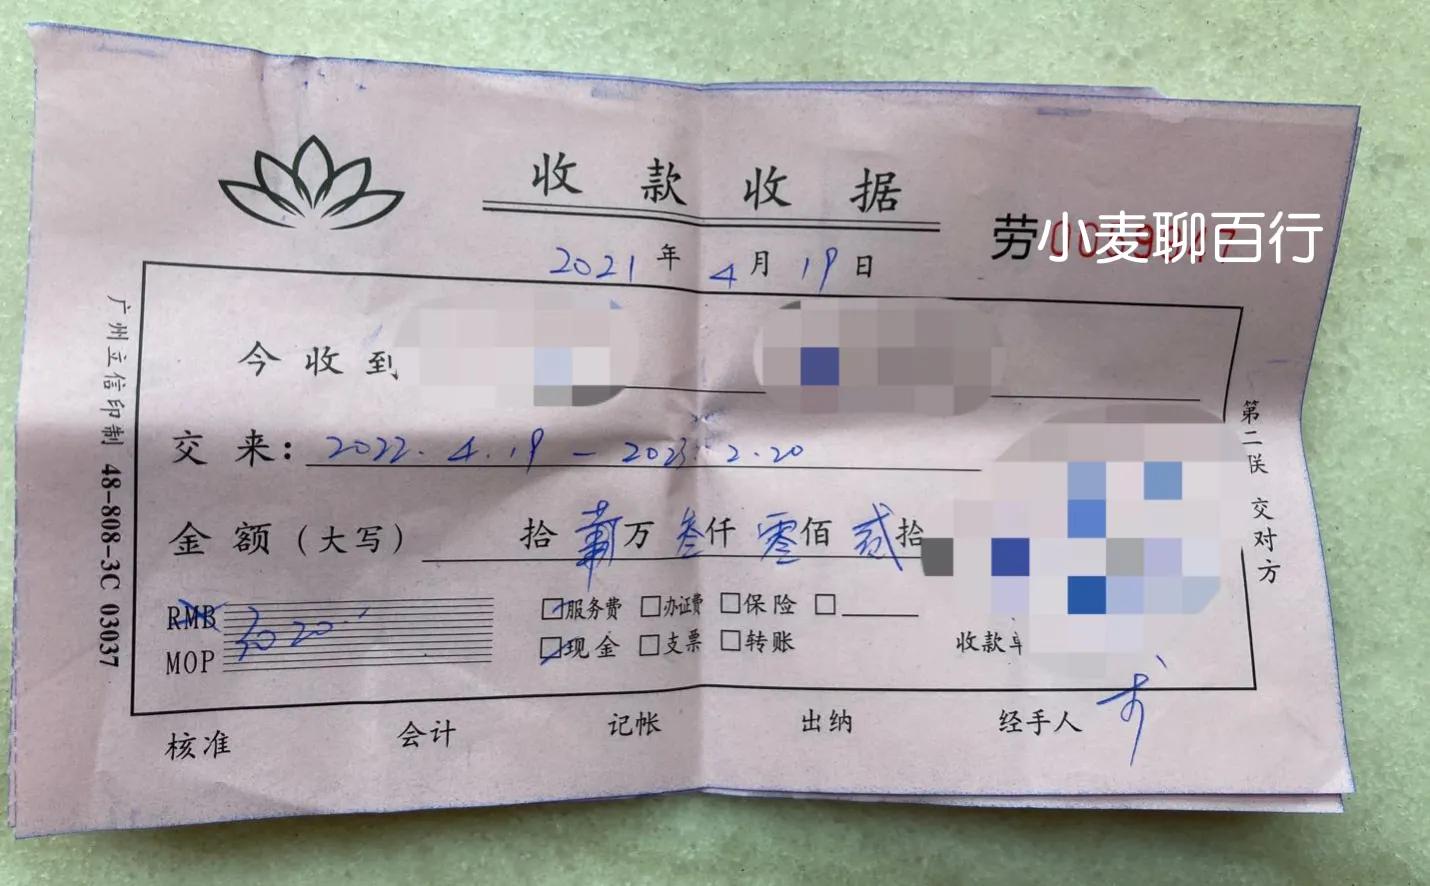 收款收据
劳
小麦聊百行
2021年4月19日
今收到
交来：2022.4.19-2023.2.20
金额（大写） 拾 万叁仟零佰贰拾
RMB 3020
MOP
服务费 办证费 保险
现金 支票 转账
收款单
核准 会计 记帐 出纳 经手人
广州立信印制 48-808-3C 03037
第二联 交对方